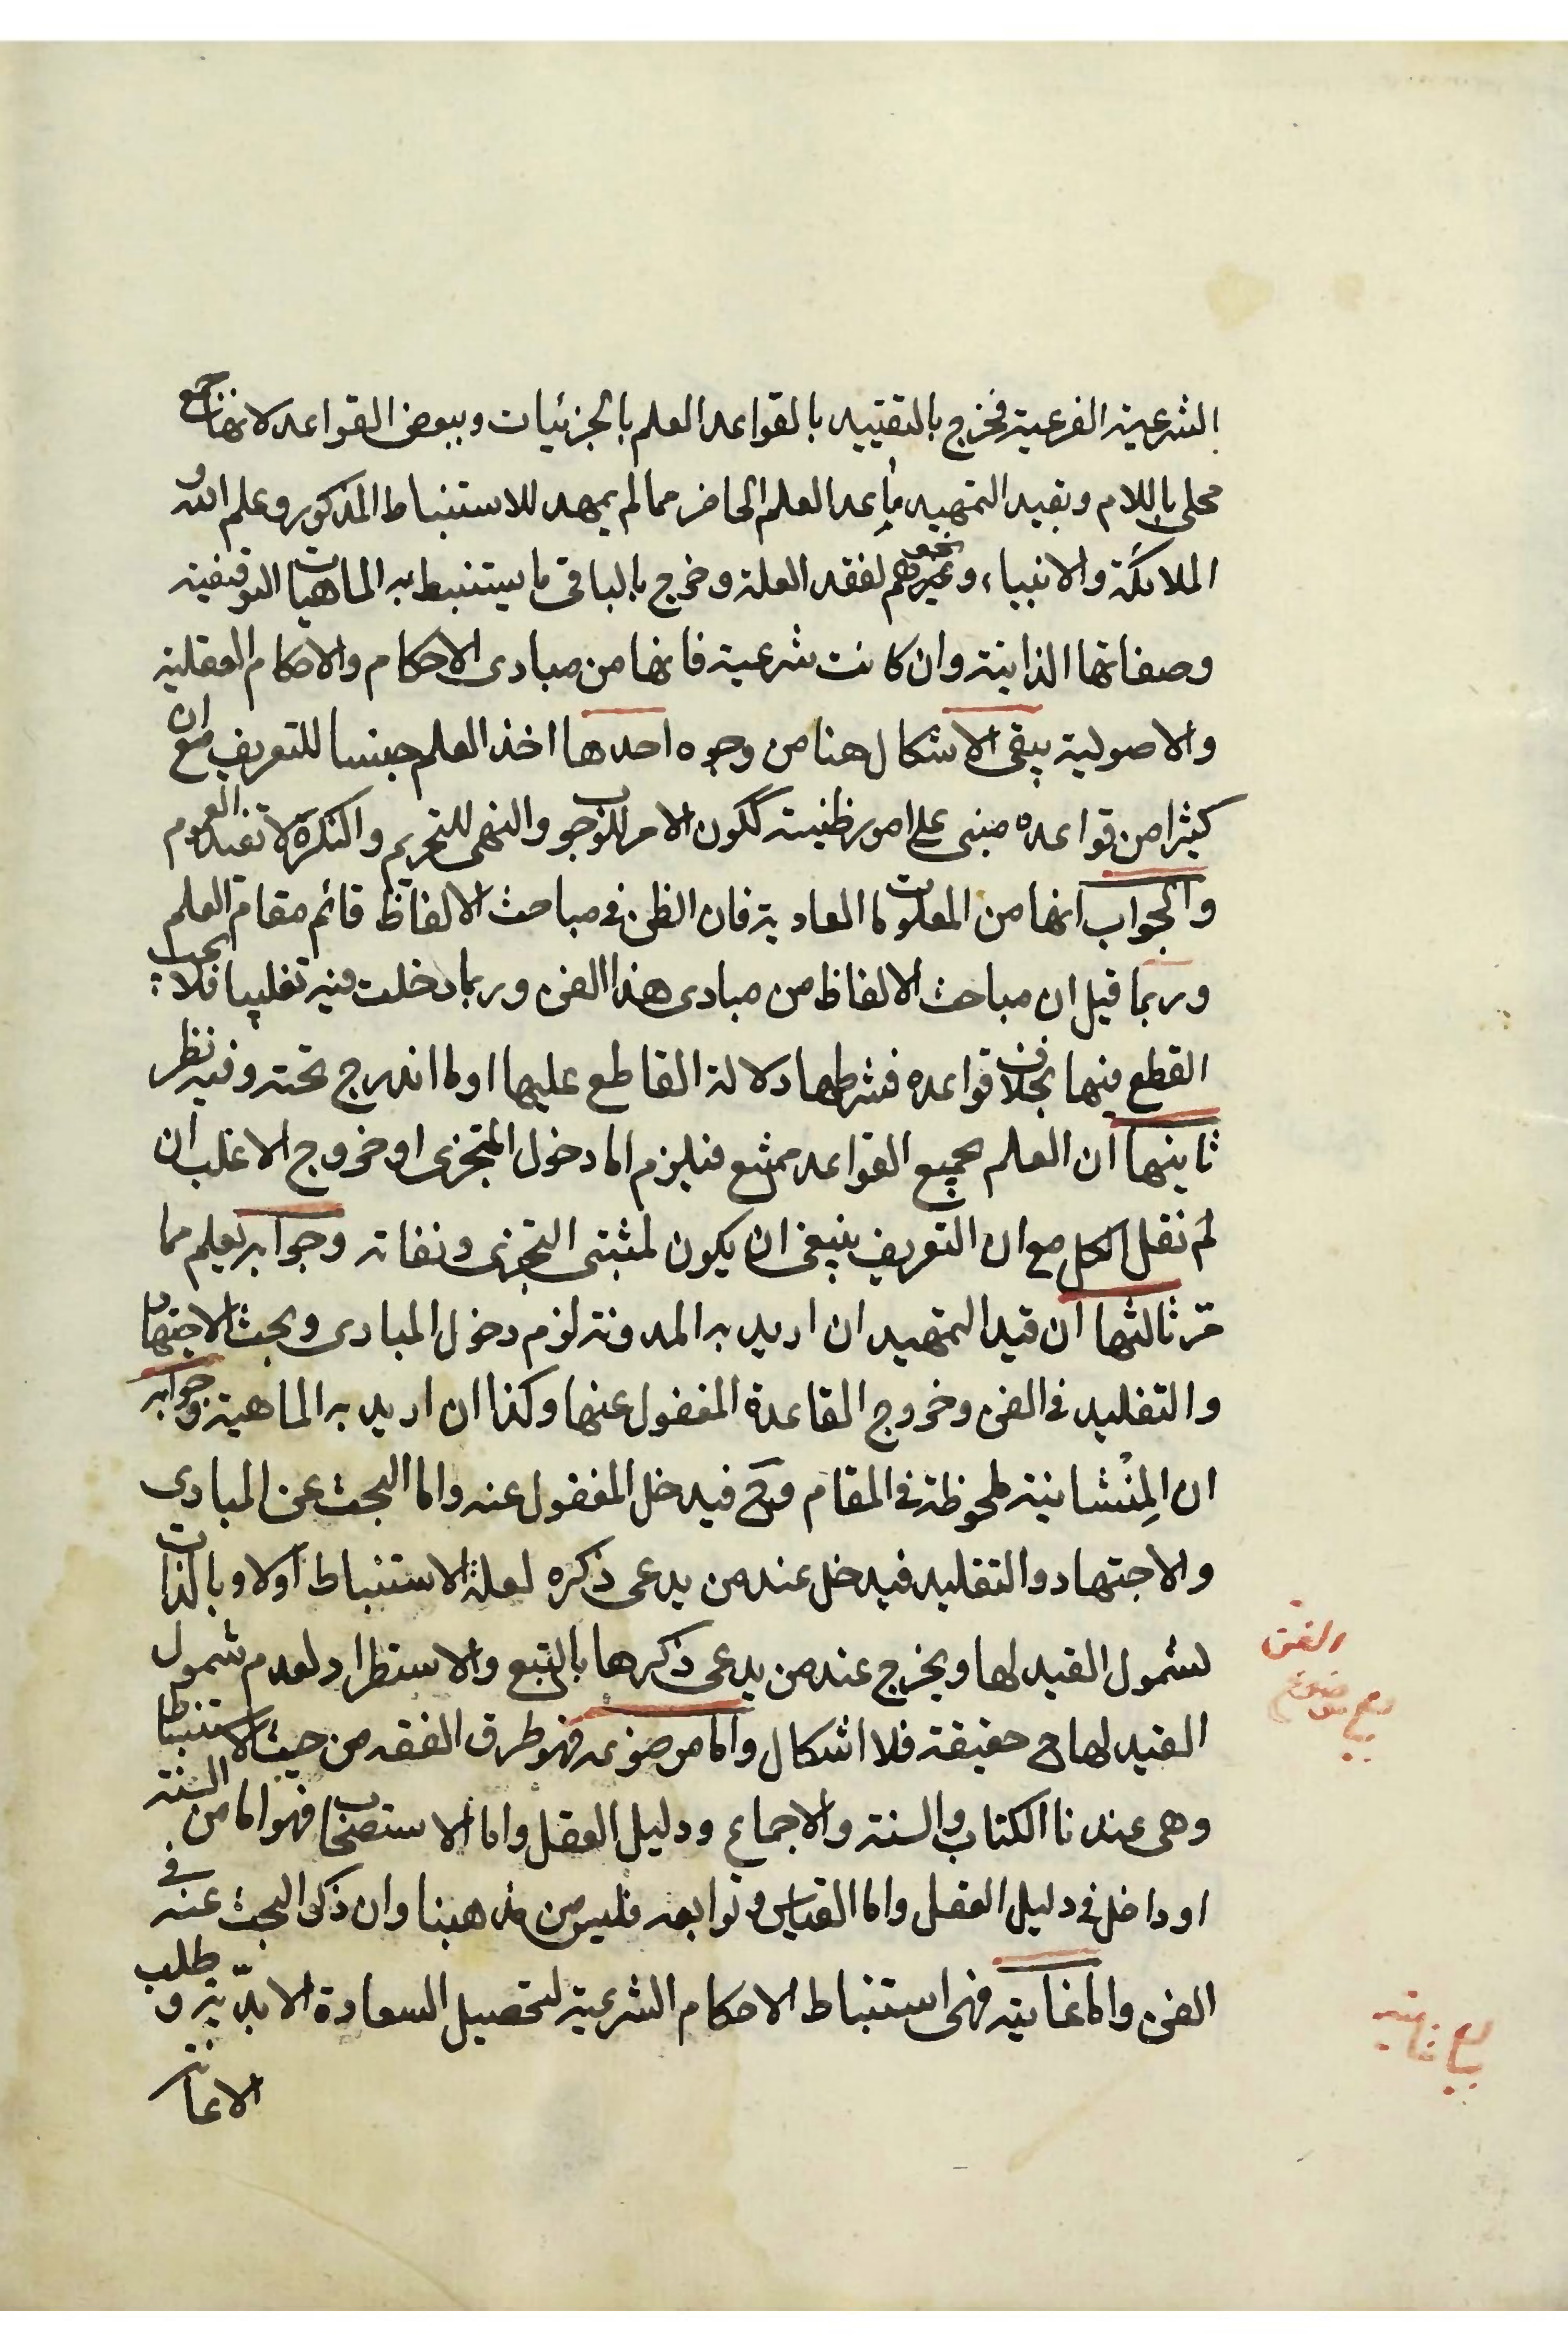 الشرعية الفرعية فخرج بالتقييد بالقواعد العلم بالجزئيات وببعض القواعد لانها جمع
محلى باللام وبقيد التمهيد ما عدا العلم الحاضر مما لم يمهد للاستنباط المذكور وعلم الله و
الملائكة والانبياء ونحوهم لفقد العلة وخرج بالباقى ما يستنبط به الماهيات التوقيفية
وصفاتها الذاتية وان كانت شرعية فانها من مبادى الاحكام والاحكام العقلية
والاصولية يبقى الاشكال هنا من وجوه احدها اخذ العلم جنسا للتعريف مع ان
كثيرا من قواعده مبنى على امور ظنية ككون الامر للوجوب والنهى للتحريم والنكرة لا تفيد العموم
والجواب انها من المعلومات العادية فان الظن فى مباحث الالفاظ قائم مقام العلم
وربما قيل ان مباحث الالفاظ من مبادى هذا الفن وربما دخلت فيه تغليبا فلا يجب
القطع فيها بخلاف قواعده فشرطها دلالة القاطع عليها او ما اندرج تحته وفيه نظر
ثانيها ان العلم بجميع القواعد ممتنع فيلزم اما دخول المتجزى او خروج الاغلب ان
لم نقل الكل مع ان التعريف ينبغى ان يكون لمثبتى التجزى ونفاته وجوابه يعلم مما
مرّ ثالثها ان قيد التمهيد ان اريد به المدونة لزم دخول المبادى وبحث الاجتهاد
والتقليد فى الفن وخروج القاعدة المغفول عنها وكذا ان اريد به الماهية وجوابه
ان المِنْشانية ملحوظة فى المقام وح فيدخل المغفول عنه واما البحث عن المبادى
والاجتهاد والتقليد فيدخل عند من يدعى ذكره لعلة الاستنباط اولا وبالذات
لشمول القيد لها ويخرج عند من يدعى ذكرها بالتبع والاستطراد لعدم شمول
القيد لها ح حقيقة فلا اشكال واما موضوعه فهو طرق الفقه من حيث الاستنباط
وهى عندنا الكتاب والسنة والاجماع ودليل العقل واما الاستصحاب فهو اما من السنة
او داخل فى دليل العقل واما القياس وتوابعه فليس من مذهبنا وان ذكر البحث عنه فى
الفن واما غايته فهى استنباط الاحكام الشرعية لتحصيل السعادة الابدّية وطلب
الاعانة
موضوع
الفن
غايته